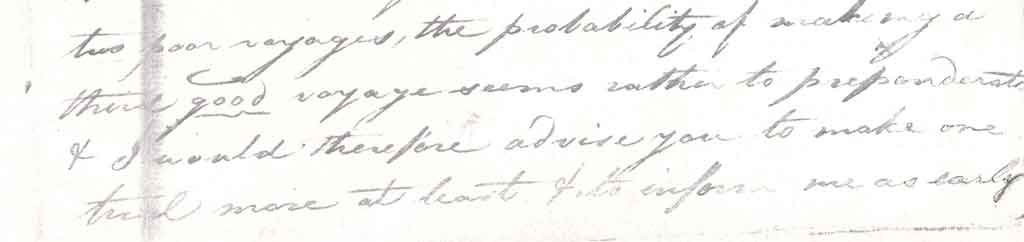 two poor voyages, the probability of making a
third good voyage seems rather to preponderate
& I would therefore advise you to make one
trial more at least & to inform me as early